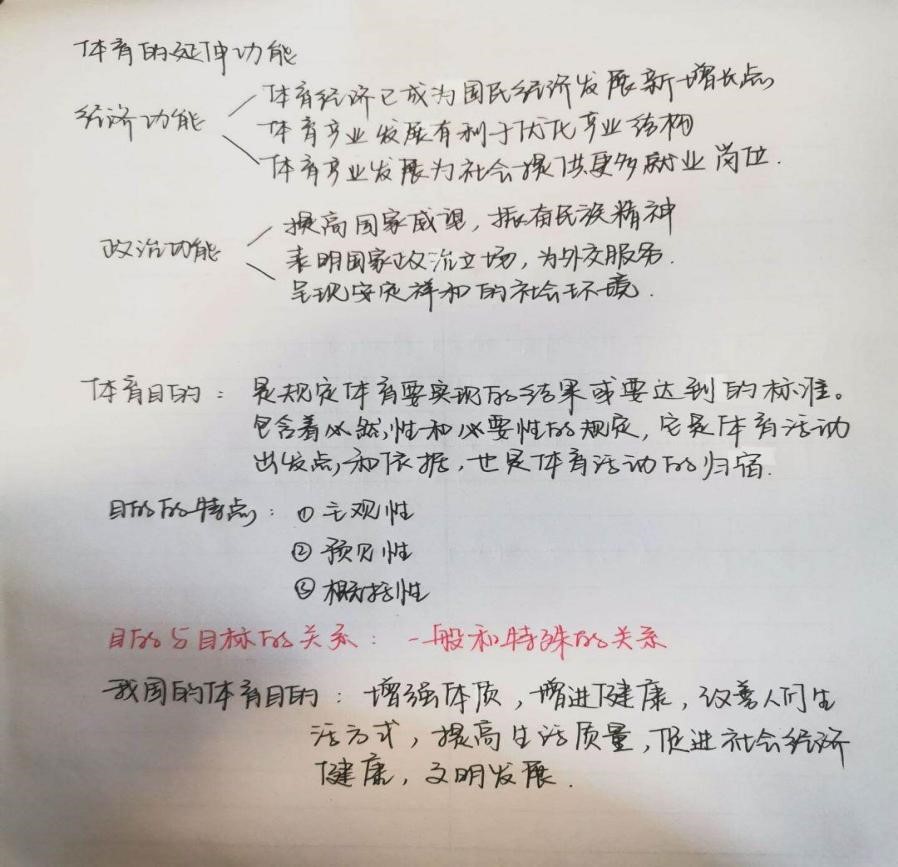 体育的延伸功能
经济功能
体育经济已成为国民经济发展新增长点
体育产业发展有利于优化产业结构
体育产业发展为社会提供更多就业岗位.
政治功能
提高国家威望，振奋民族精神
表明国家政治立场，为外交服务.
呈现安定祥和的社会环境.
体育目的：是规定体育要实现的结果或要达到的标准。
包含着必然性和必要性的规定，它是体育活动
出发点和依据，也是体育活动的归宿.
目的的特点：①主观性
②预见性
③概括性
目的与目标的关系：一般和特殊的关系
我国的体育目的：增强体质，增进健康，改善人们生
活方式，提高生活质量，促进社会经济
健康，文明发展.